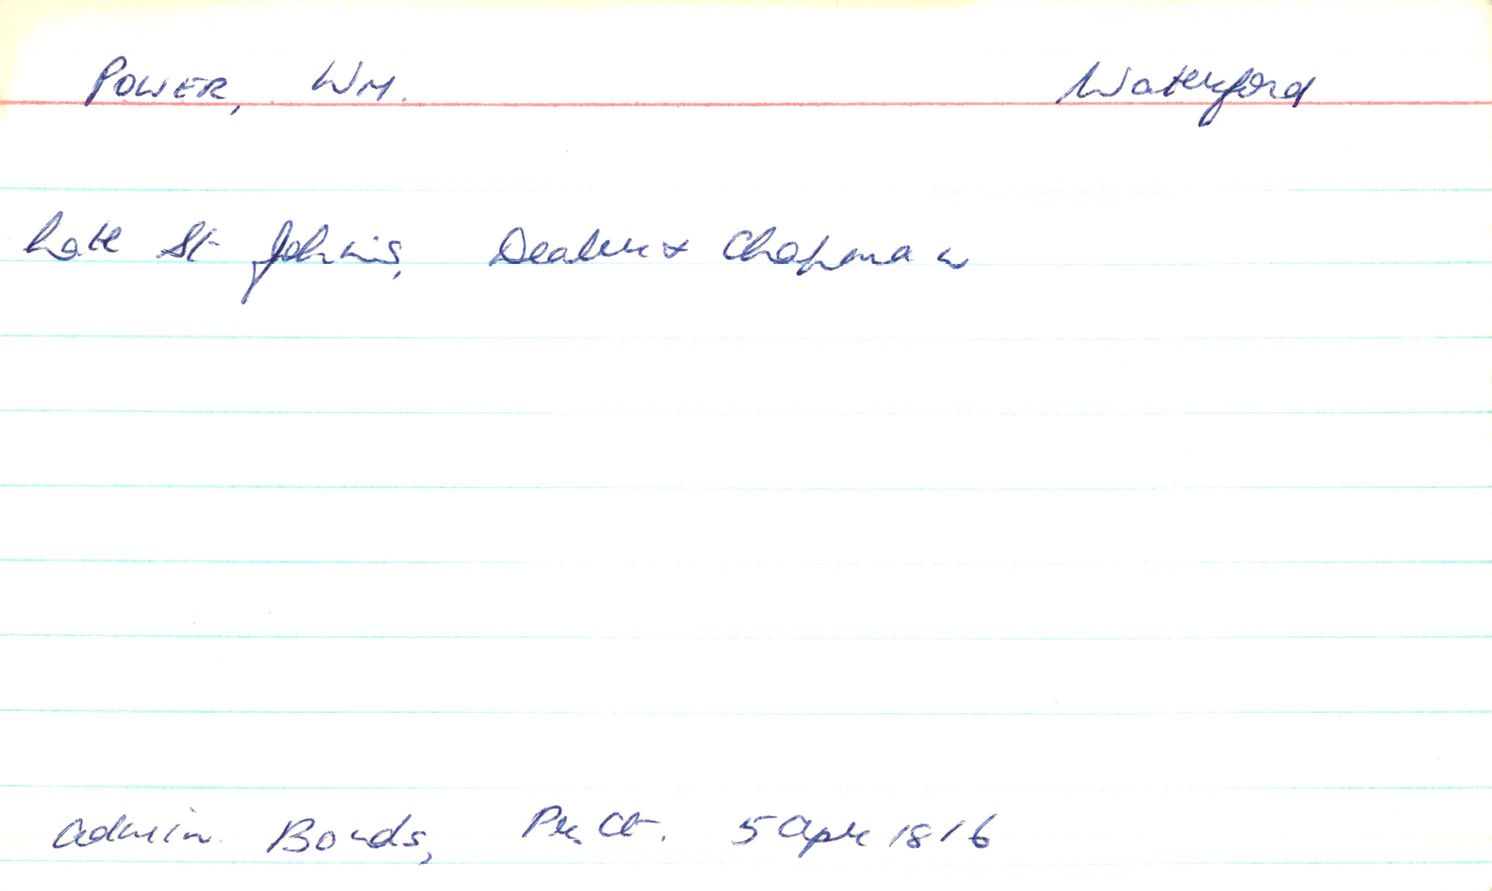 POWER, WM. Waterford
Late St. John's, Dealer & Chapman
Admin. Bonds, Pr. Ct. 5 Apr 1816